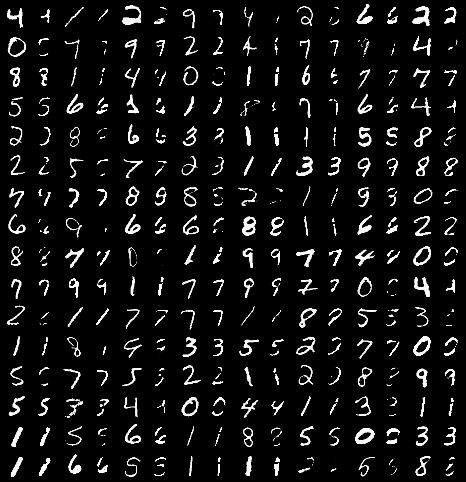 4 1 1 2 2 9 7 4 2 6 6 2 2
0 7 7 9 9 2 2 4 7 7 9 4
8 8 1 1 4 4 0 1 1 6 6 7 7 7 7
5 5 6 6 1 1 1 8 7 7 6 6 4
2 2 8 6 6 3 3 1 1 1 1 5 5 8 8
2 2 5 7 7 2 3 1 1 3 3 9 9 8 8
7 7 7 7 8 8 8 5 2 1 1 9 3 0
6 9 6 6 6 8 8 1 1 6 6 2 2
8 8 7 7 0 1 1 9 9 7 7 4 4 0 0
7 7 9 9 1 1 7 7 9 9 7 7 0 4
2 1 1 7 7 7 7 1 1 8 8 5 5 3
1 1 8 9 3 3 5 5 2 2 7 7 0 0
5 7 7 5 3 2 2 1 1 2 8 9 9
5 5 3 3 4 0 0 4 4 1 1 3 1 1
1 1 5 5 6 6 1 1 8 8 5 5 0 3 3
1 1 6 6 5 3 1 1 1 1 5 8 8